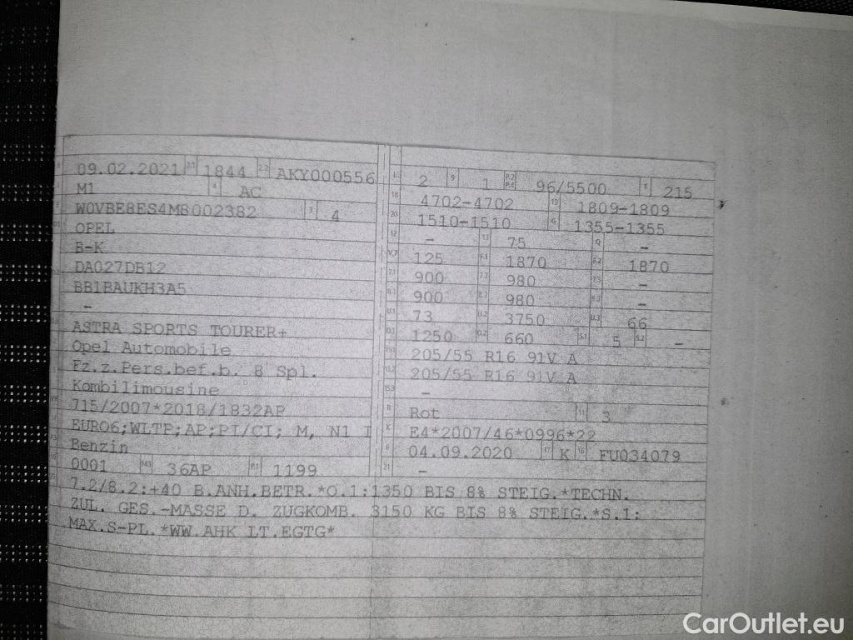 09.02.2021 1844 AKY000556
M1 AC
W0VBE8ES4M8002382 4
OPEL
B-K
DA027DB12
BB1BAUKH3A5
-
ASTRA SPORTS TOURER+
Opel Automobile
Fz.z.Pers.bef.b. 8 Spl.
Kombilimousine
715/2007*2018/1832AP
EURO6;WLTP;AP;PI/CI; M, N1 I
Benzin
0001 36AP 1199
2 1 96/5500 215
4702-4702 1809-1809
1510-1510 1355-1355
- 75 -
125 1870 1870
900 980 -
900 980 -
73 3750 66
1250 660 5 -
205/55 R16 91V A
205/55 R16 91V A
-
Rot 3
E4*2007/46*0996*22
04.09.2020 K FU034079
-
7.2/8.2:+40 B.ANH.BETR.*O.1:1350 BIS 8% STEIG.*TECHN.
ZUL. GES.-MASSE D. ZUGKOMB. 3150 KG BIS 8% STEIG.*S.1:
MAX.S-PL.*WW.AHK LT.EGTG*
CarOutlet.eu